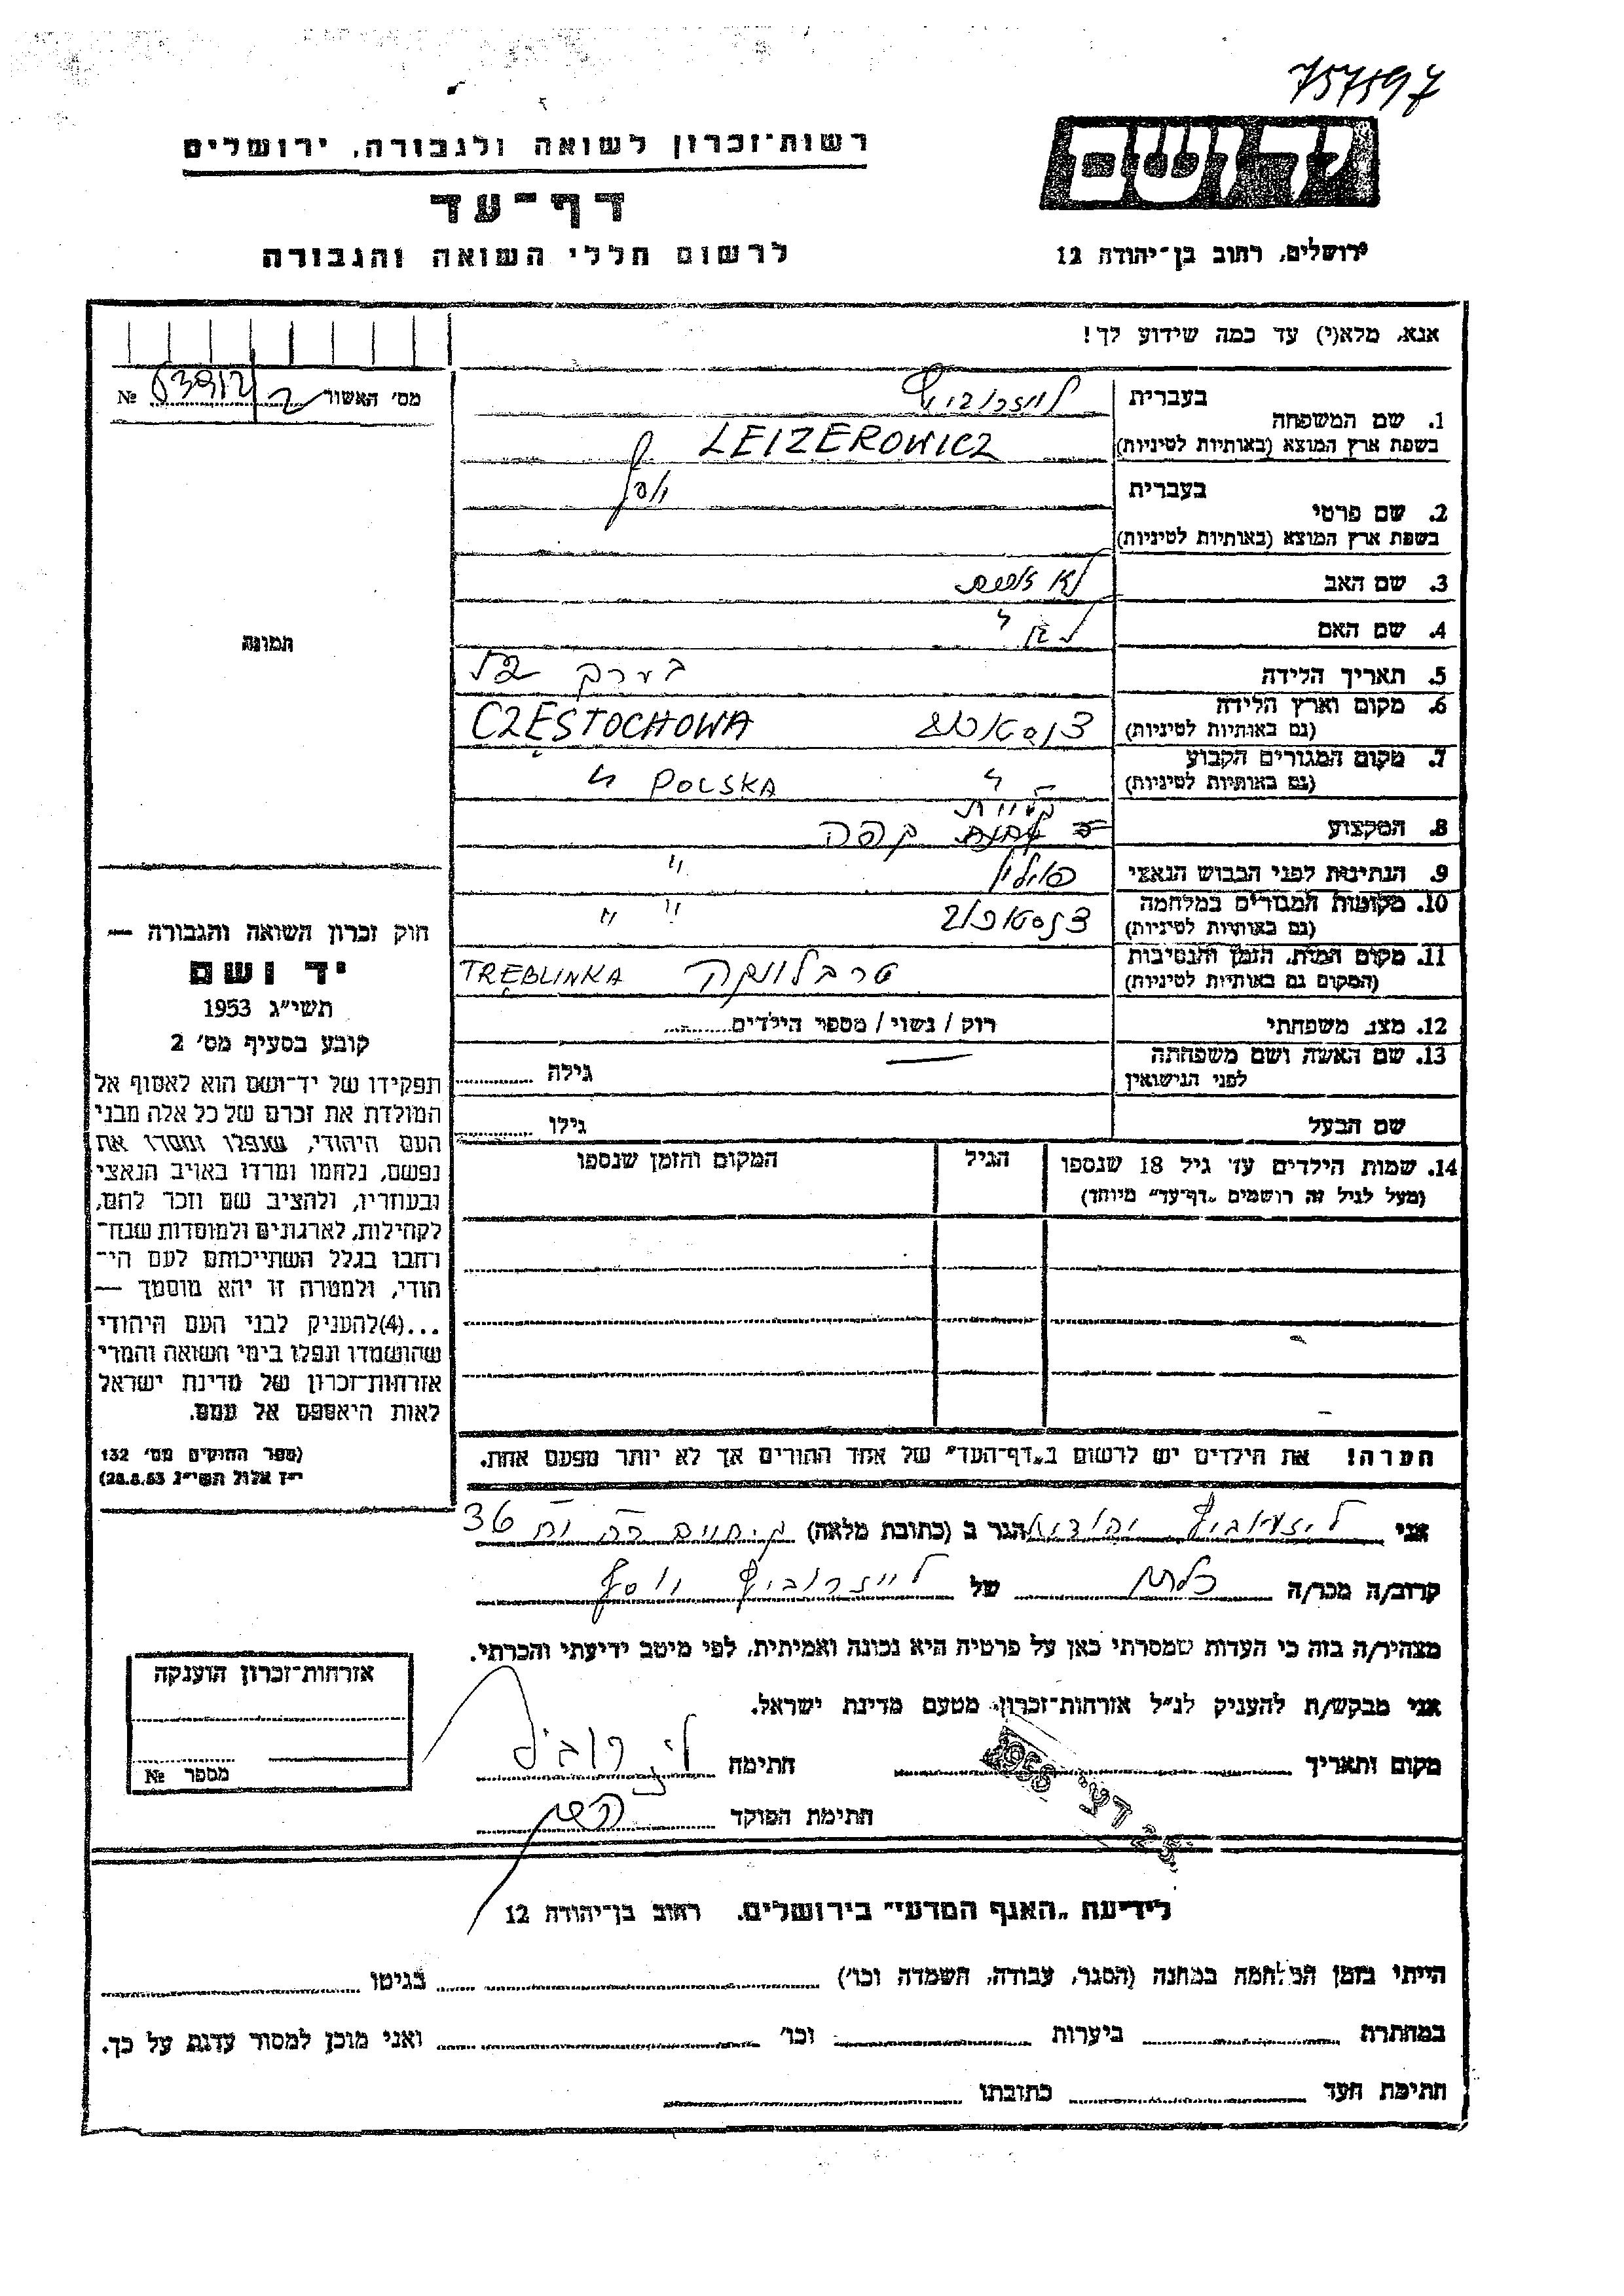 757597
רשות־זכרון לשואה ולגבורה, ירושלים
דף־עד
לרשום חללי השואה והגבורה
ירושלים, רחוב בן־יהודה 12
אנא, מלא(י) עד כמה שידוע לך!
מס' האשור №
1. שם המשפחה
בעברית
בשפת ארץ המוצא (באותיות לטיניות) LEIZEROWICZ
2. שם פרטי
בעברית יוסף
בשפת ארץ המוצא (באותיות לטיניות)
3. שם האב לא
4. שם האם
5. תאריך הלידה בערך
6. מקום וארץ הלידה
(גם באותיות לטיניות) CZĘSTOCHOWA
7. מקום המגורים הקבוע
(גם באותיות לטיניות) POLSKA
8. המקצוע
9. הנתינות לפני הכבוש הנאצי פולין "
10. מקומות המגורים במלחמה
(גם באותיות לטיניות) " "
11. מקום המות, הזמן והנסיבות
(המקום גם באותיות לטיניות) טרבלינקה TREBLINKA
12. מצב משפחתי רוק / נשוי / מספר הילדים
13. שם האשה ושם משפחתה
לפני הנישואין גילה
שם הבעל גילו
14. שמות הילדים עד גיל 18 שנספו הגיל המקום והזמן שנספו
(מעל לגיל זה רושמים „דף־עד" מיוחד)
הערה! את הילדים יש לרשום ב„דף־העד" של אחד ההורים אך לא יותר מפעם אחת.
תמונה
חוק זכרון השואה והגבורה —
יד ושם
תשי"ג 1953
קובע בסעיף מס' 2
תפקידו של יד־ושם הוא לאסוף אל
המולדת את זכרם של כל אלה מבני
העם היהודי, שנפלו ומסרו את
נפשם, נלחמו ומרדו באויב הנאצי
ובעוזריו, ולהציב שם וזכר להם,
לקהילות, לארגונים ולמוסדות שנח־
רחבו בגלל השתייכותם לעם הי־
הודי, ולמטרה זו יהא מוסמך —
...(4)להעניק לבני העם היהודי
שהושמדו ונפלו בימי השואה והמרי
אזרחות־זכרון של מדינת ישראל
לאות היאספם אל עמם.
(ספר החוקים מס' 132
י"ז אלול תשי"ג 28.8.53)
אני הגר ב (כתובת מלאה) 36
קרוב/ה מכר/ה של לייזרוביץ יוסף
מצהיר/ה בזה כי העדות שמסרתי כאן על פרטיה היא נכונה ואמיתית, לפי מיטב ידיעתי והכרתי.
אני מבקש/ת להעניק לנ"ל אזרחות־זכרון מטעם מדינת ישראל.
מקום ותאריך חתימה
חתימת הפוקד
אזרחות־זכרון הוענקה
מספר №
לידיעת „האגף המדעי" בירושלים. רחוב בן־יהודה 12
הייתי בזמן המלחמה במחנה (הסגר, עבודה, השמדה וכו') בגיטו
במחתרת ביערות וכו' ואני מוכן למסור עדות על כך.
חתימת העד כתובתו